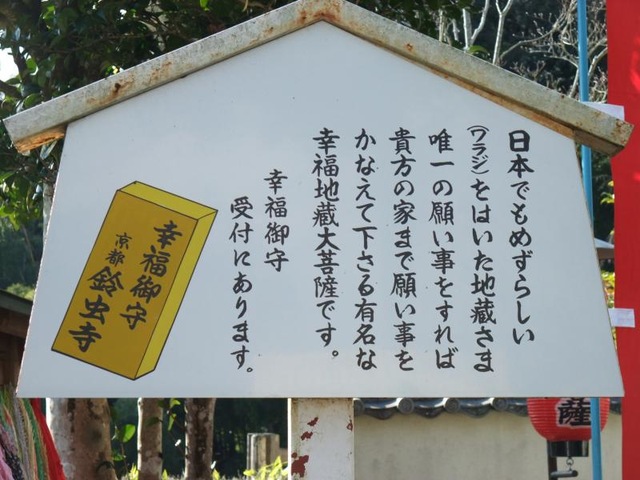 日本でもめずらしい
(ワラジ)をはいた地蔵さま
唯一の願い事をすれば
貴方の家まで願い事を
かなえて下さる有名な
幸福地蔵大菩薩です。
幸福御守
受付にあります。
幸福御守
京都
鈴虫寺
薩